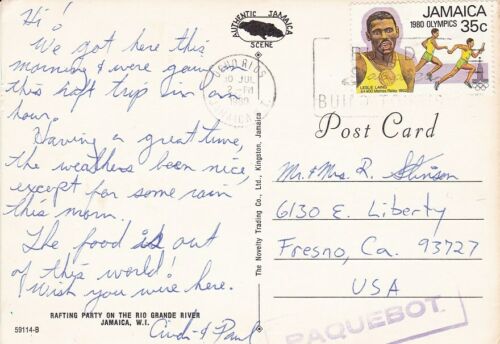 Hi!
We got here this
morning & were going on
this raft trip in an
hour.
Having a great time,
the weathers been nice,
except for some rain
this morn.
The food is out
of this world!
Wish you were here.
Cindi & Paul
RAFTING PARTY ON THE RIO GRANDE RIVER
JAMAICA, W.I.
59114-B
AUTHENTIC JAMAICA
SCENE
The Novelty Trading Co., Ltd., Kingston, Jamaica
OCHO RIOS
10 JUL
2 - PM
1980
JAMAICA
BUILD
JAMAICA
1980 OLYMPICS 35c
LESLIE LAING
4 x 400 Metres Relay 1952
Post Card
Mr. & Mrs. R. Stinson
6130 E. Liberty
Fresno, Ca. 93727
USA
PAQUEBOT